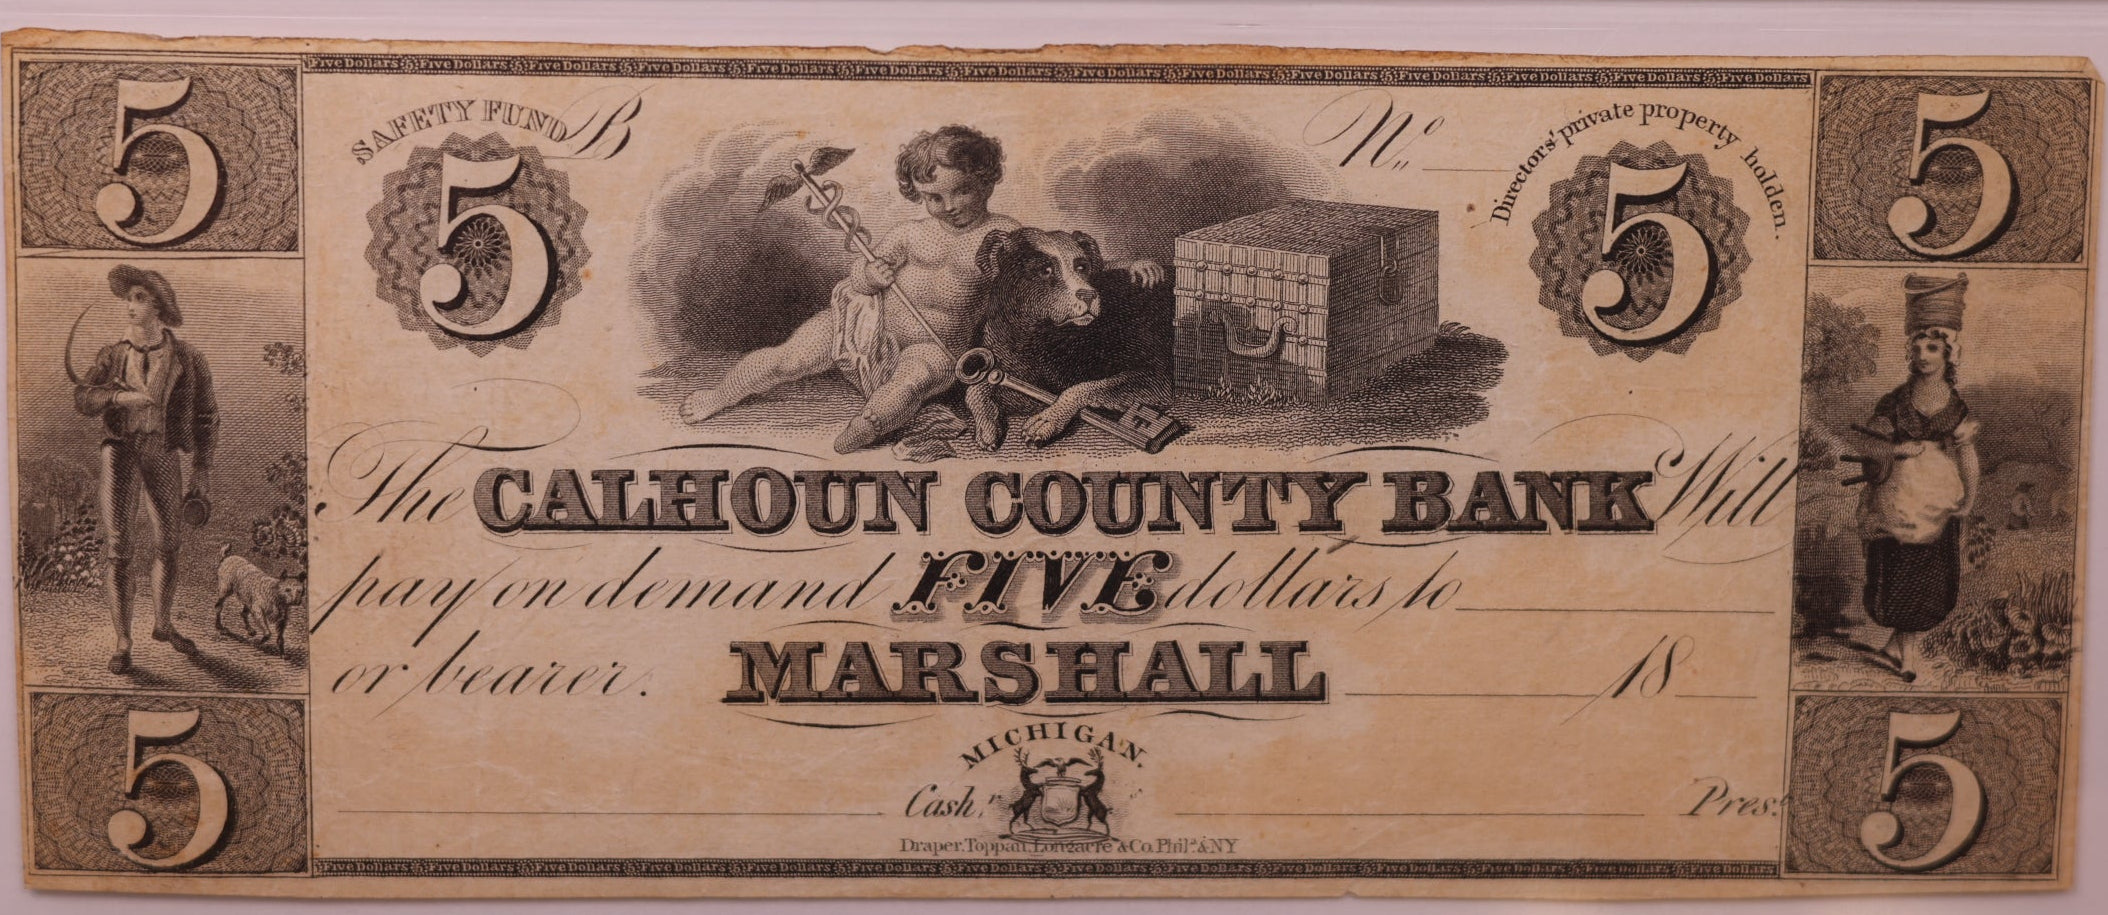 5 Five Dollars 5 Five Dollars 5 Five Dollars 5 Five Dollars 5 Five Dollars 5 Five Dollars 5 Five Dollars 5 Five Dollars 5 Five Dollars 5 Five Dollars 5 Five Dollars 5 Five Dollars 5 Five Dollars 5 Five Dollars
5 5
SAFETY FUND B No. Directors' private property holden.
5 5
The CALHOUN COUNTY BANK Will
pay on demand FIVE dollars to
or bearer. MARSHALL 18
MICHIGAN.
5 5
Cash.r Pres.t
Draper. Toppan Longacre & Co. Phila. & NY
5 Five Dollars 5 Five Dollars 5 Five Dollars 5 Five Dollars 5 Five Dollars 5 Five Dollars 5 Five Dollars 5 Five Dollars 5 Five Dollars 5 Five Dollars 5 Five Dollars 5 Five Dollars 5 Five Dollars 5 Five Dollars